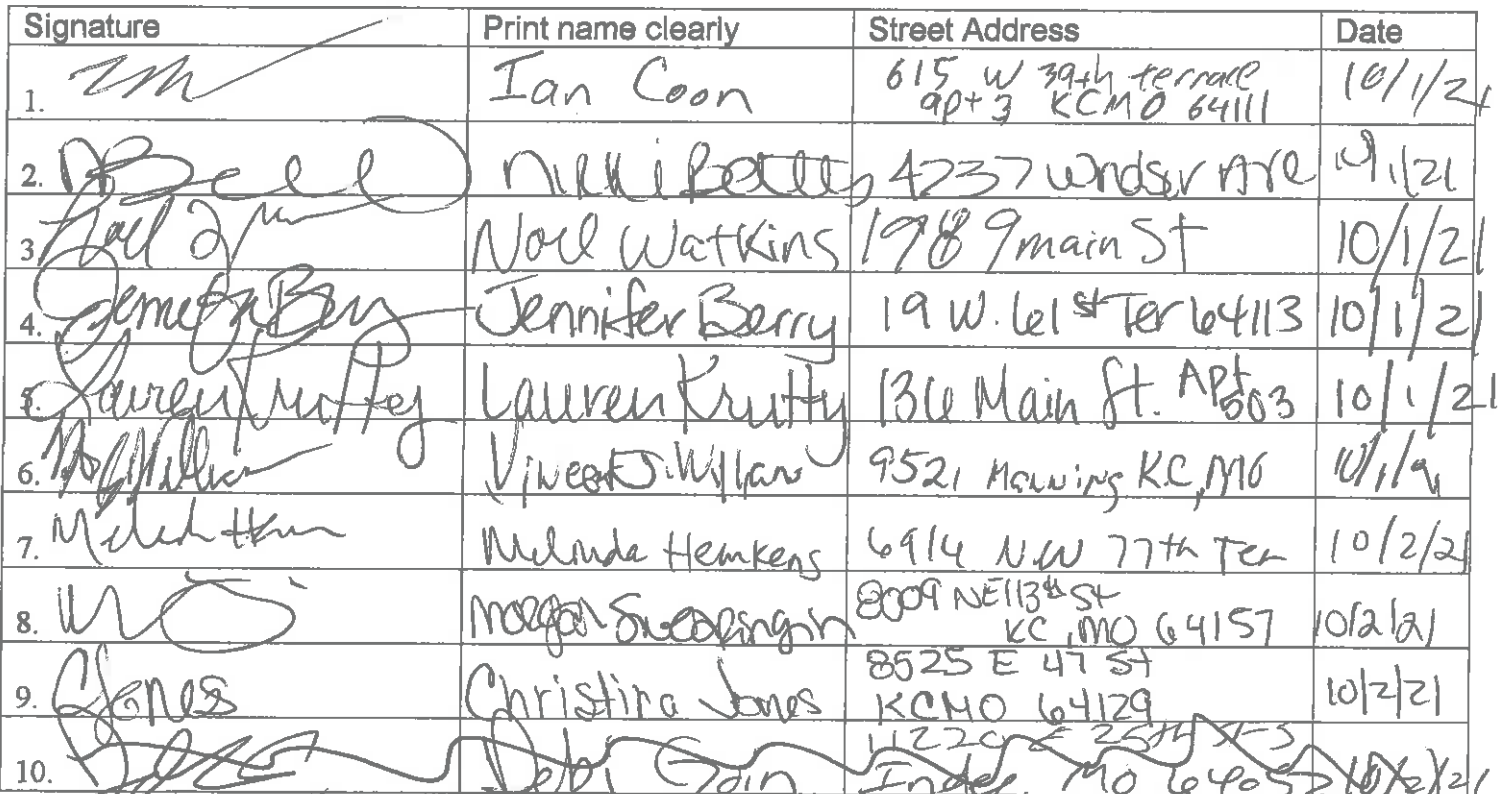 Signature Print name clearly Street Address Date
1. Ian Coon 615 W 39th terrace 10/1/21
apt 3 KCMO 64111
2. Nikki Batts 4237 Windsor Ave 10/1/21
3. Noel Watkins 1989 main St 10/1/21
4. Jennifer Berry Jennifer Berry 19 W. 61st Ter 64113 10/1/21
5. Lauren Krutty Lauren Krutty 136 Main St. Apt 503 10/1/21
6. 9521 Manning KC, MO
7. Melinda Hemkens 6914 N.W 77th Ter 10/2/21
8. Morgan Swearingin 8009 NE 113th St 10/2/21
KC, MO 64157
9. CJones Christina Jones 8525 E 47 St 10/2/21
KCMO 64129
10. Debi Goin Indep. MO 10/2/21